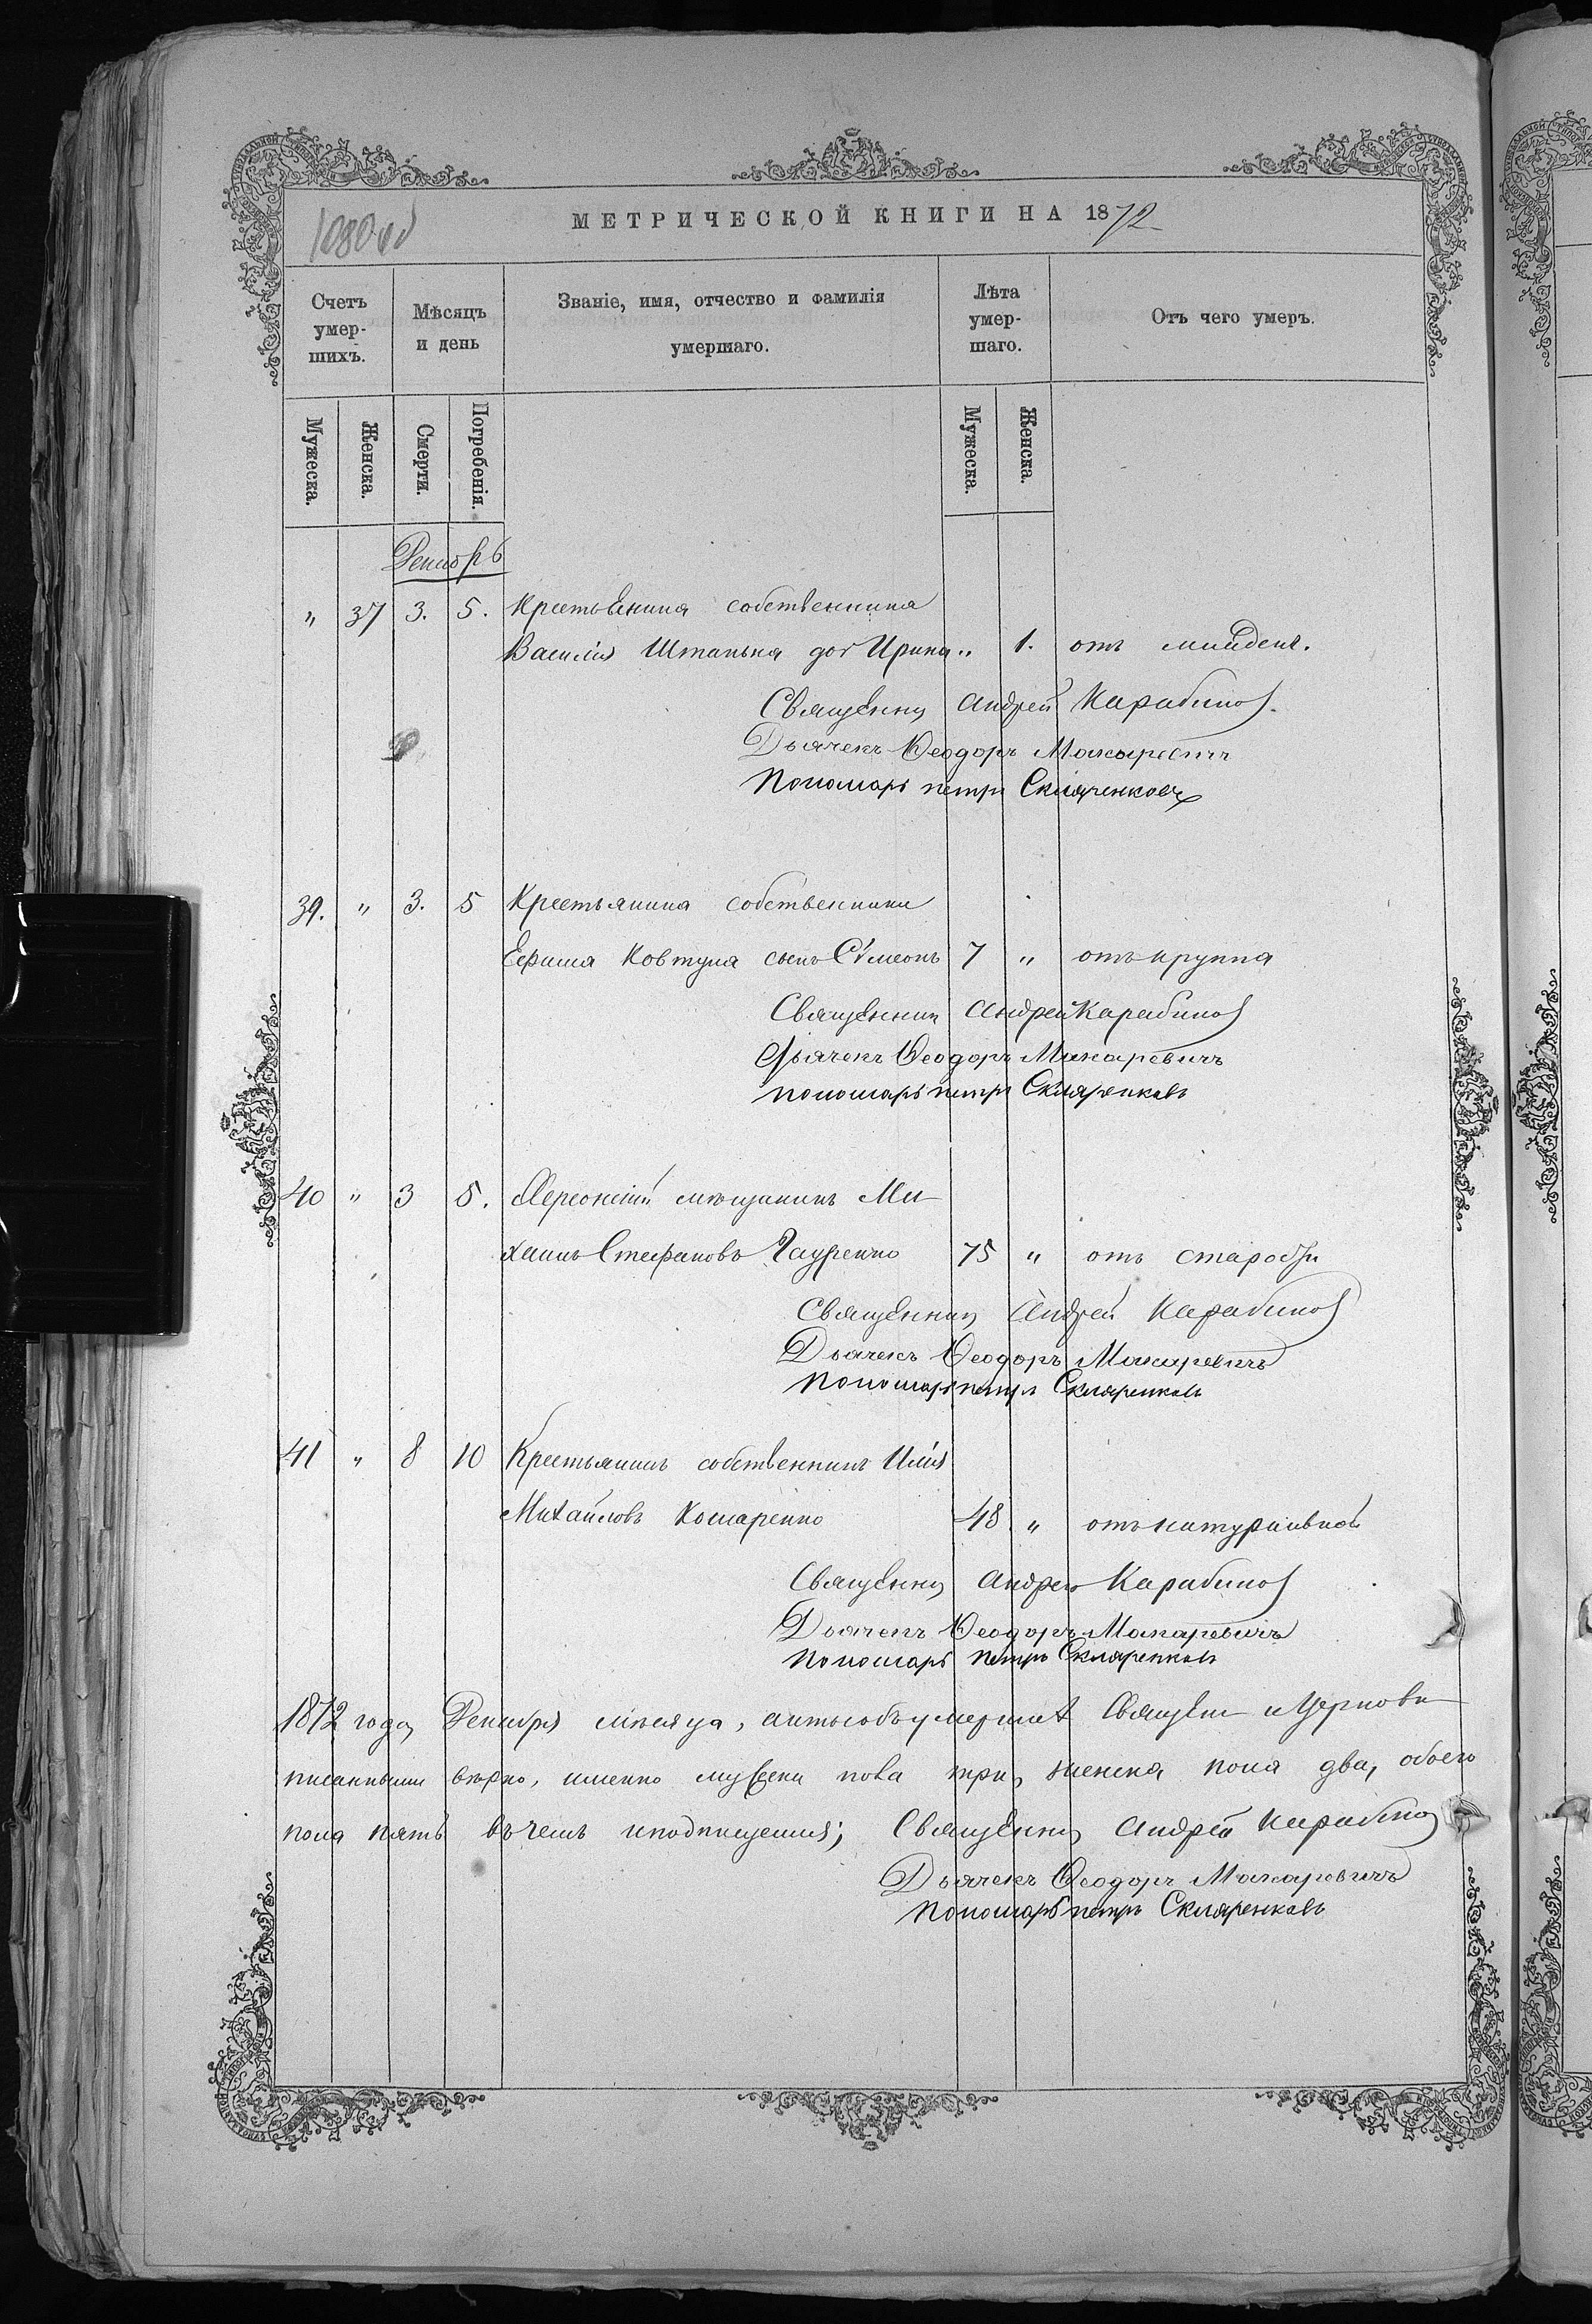 МЕТРИЧЕСКОЙ КНИГИ НА 1872
Счетъ умер-шихъ.
Мѣсяцъ и день
Званіе, имя, отчество и фамилія умершаго.
Лѣта умер-шаго.
Отъ чего умеръ.
Мужеска. Женска. Смерти. Погребенія. Мужеска. Женска.
Декабрь
" 37 3. 5. Крестьянина собственника
Василія Штанька доч Ирина " 1. отъ младенч.
Священник Андрей Карабинов
Дьячекъ Ѳеодоръ Макаревичъ
Пономарь петръ Скляренковъ
39. " 3. 5 Крестьянина собственника
Ефима Ковтуна сынъ Сѵмеонъ 7 " отъ круппа
Священник Андрей Карабинов
Дьячекъ Ѳеодоръ Макаревичъ
пономарь петръ Скляренковъ
40 " 3 5. Херсонскій мѣщанинъ Ми-
хаилъ Стефановъ Гауренко 75 " отъ старости
Священник Андрей Карабинов
Дьячекъ Ѳеодоръ Макаревичъ
Пономарь петръ Скляренковъ
41 " 8 10 Крестьянинъ собственникъ Илія
Михайловъ Комаренко 48 " отъ натуральной
Священник Андрей Карабинов
Дьячекъ Ѳеодоръ Макаревичъ
Пономарь петръ Скляренковъ
1872 года, Декабря мѣсяца, акты объ умершихъ Священно и Церковно
писанными вѣрно, именно мужеска пола три, женска пола два, обоего
пола пять въ чемъ и подпишемся; Священник Андрей Карабинов
Дьячекъ Ѳеодоръ Макаревичъ
Пономарь петръ Скляренковъ